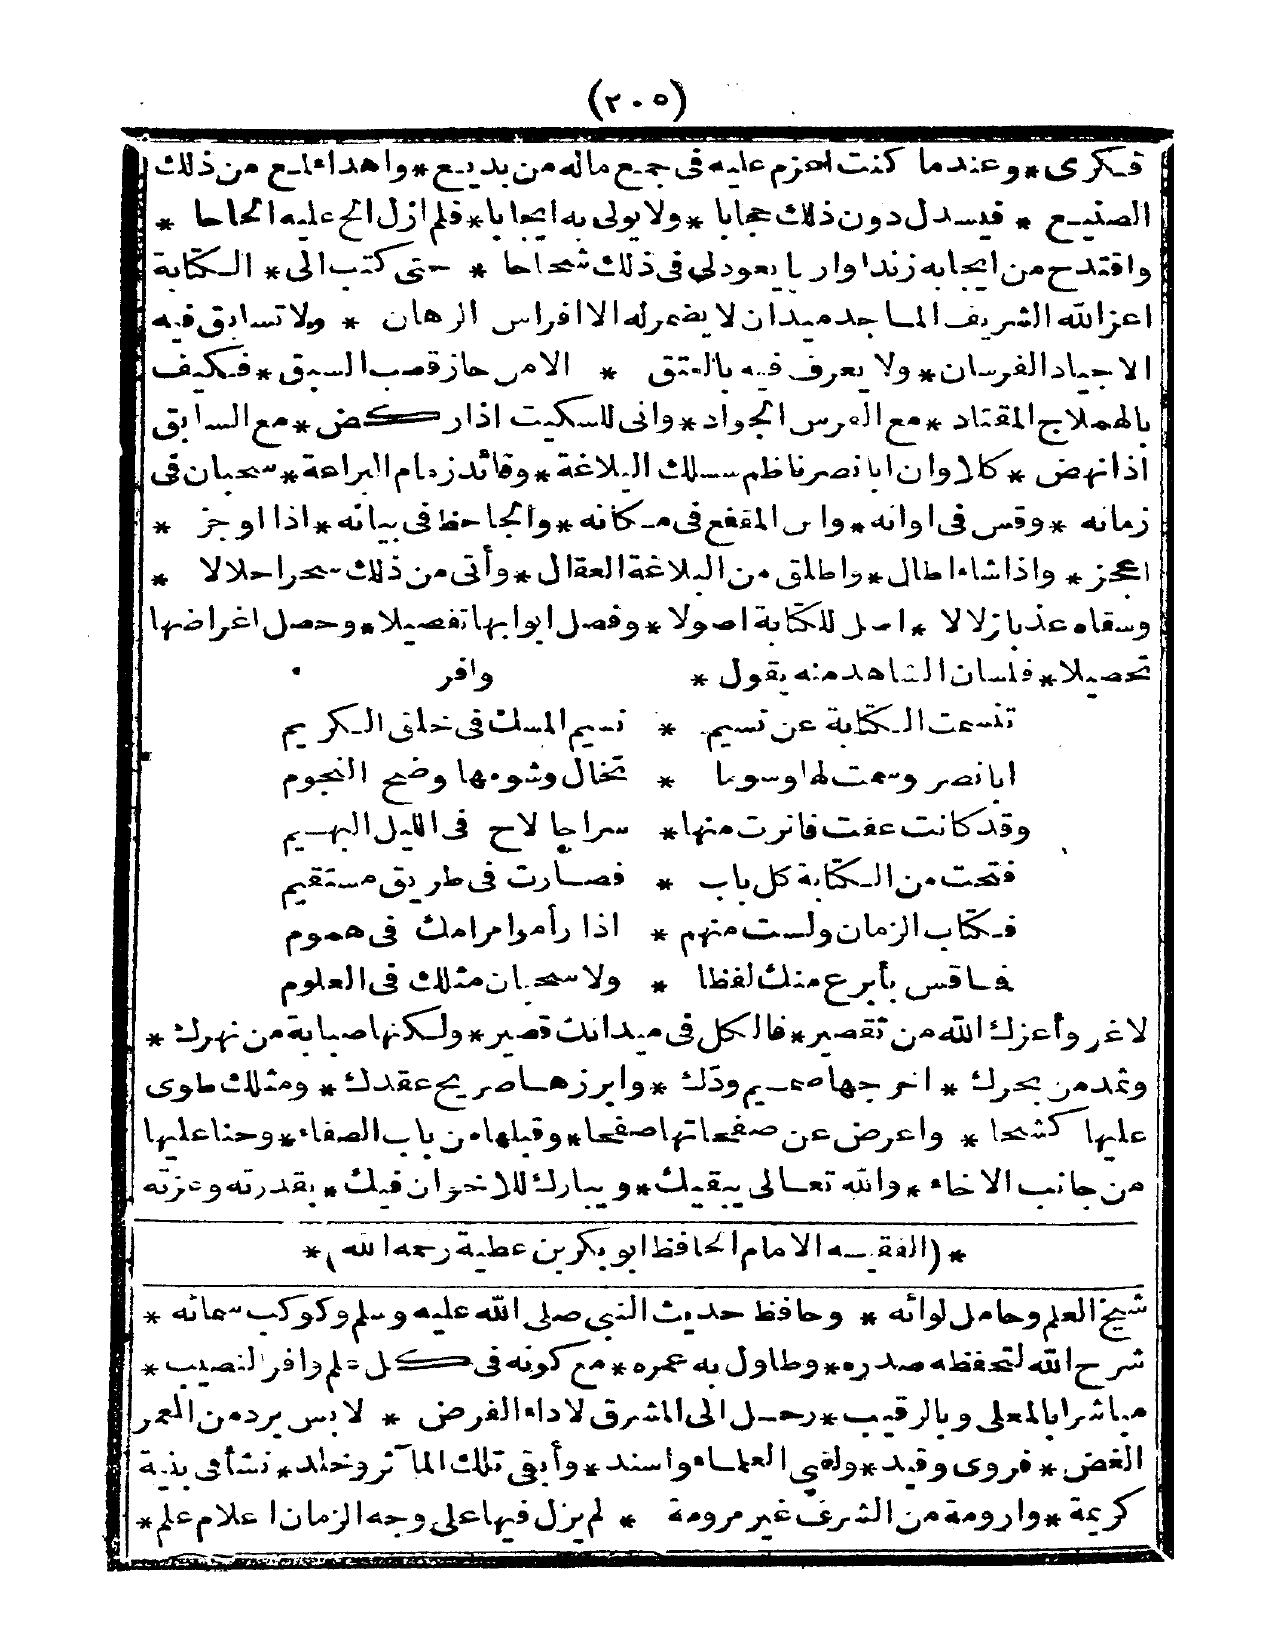 (٢٠٥)
فـكرى * وعندما كنت اعزم عليه فى جمع ماله من بديع * واهداء لمع من ذلك
الصنيع * فيسدل دون ذلك حجابا * ولا يولى به ايجابا * فلم ازل الح عليه الحاحا *
واقتدح من ايجابه زندا وار يا يعود لى فى ذلك شحاحا * حتى كتب الى * الـكتابة
اعز الله الشريف الماجد ميدان لا يضمر له الا افراس الرهان * ولا تسابق فيه
الاجياد الفرسان * ولا يعرف فيه بالعتق * الا من حاز قصب السبق * فـكيف
بالهملاج المقتاد * مع الفرس الجواد * وانى للسكيت اذا ركض * مع السابق
اذا نهض * كلا وان ابا نصر ناظم سلك البلاغة * وقائد زمام البراعة * سحبان فى
زمانه * وقس فى اوانه * وابن المقفع فى مـكانه * والجاحظ فى بيانه * اذا اوجز *
اعجز * واذا شاء اطال * واطلق من البلاغة العقال * وأتى من ذلك سحرا حلالا *
وسقاه عذبا زلالا * اصل للكتابة اصولا * وفصل ابوابها تفصيلا * وحصل اغراضها
تحصيلا * فلسان الشاهد منه يقول * وافر
تنسمت الـكتابة عن نسيم * نسيم المسك فى خلق الـكريم
ابا نصر وسمت لها وسوما * تخال وشومها وضح النجوم
وقد كانت عفت فانرت منها * سراجا لاح فى الليل البهـيم
فتحت من الـكتابة كل باب * فصـارت فى طريق مستقيم
فـكتاب الزمان ولست منهم * اذا رأموا مرامك فى هموم
فـاقس بأبرع منك لفظا * ولا سحبان مثلك فى العلوم
لاغر وأعزك الله من تقصير * فالكل فى ميدانك قصير * ولكنها صبابة من نهرك *
وثمد من بحرك * اخرجها صميم ودّك * وابرزهـا صريح عقدك * ومثلك طوى
عليها كشحا * واعرض عن صفحاتها صفحا * وقبلها من باب الصفاء * وحنا عليها
من جانب الاخاء * والله تعـالى يبقيك * ويبارك للاخوان فيك * بقدرته وعزته
* (الفقيـه الامام الحافظ ابو بكر بن عطية رحمه الله) *
شيخ العلم وحامل لوائه * وحافظ حديث النبي صلى الله عليه وسلم وكوكب سمائه *
شرح الله لتحفظه صدره * وطاول به عمره * مع كونه فى كل علم وافر النصيب *
مباشرا بالمعلى وبالرقيب * رحـل الى المشرق لاداء الفرض * لابس برد من العمر
الغض * فروى وقيد * ولقى العلمـاء واسند * وأبقى تلك المآثر وخلد * نشأ فى بنية
كريمة * وارومة من الشرف غير مرومة * لم يزل فيها على وجه الزمان اعلام علم *